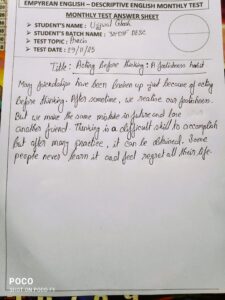 EMPYREAN ENGLISH – DESCRIPTIVE ENGLISH MONTHLY TEST
MONTHLY TEST ANSWER SHEET
➤ STUDENT'S NAME :
➤ STUDENT'S BATCH NAME : DESC
➤ TEST TOPIC : Precis
➤ TEST DATE : 29/11/25
Title: Acting Before thinking: A foolishness habit
Many friendships have been broken up just because of acting
before thinking. After sometime, we realise our foolishness.
But we make the same mistake in future and lose
another friend. Thinking is a difficult skill to accomplish
but after many practice, it can be obtained. Some
people never learn it and feel regret all their life.
POCO
SHOT ON POCO